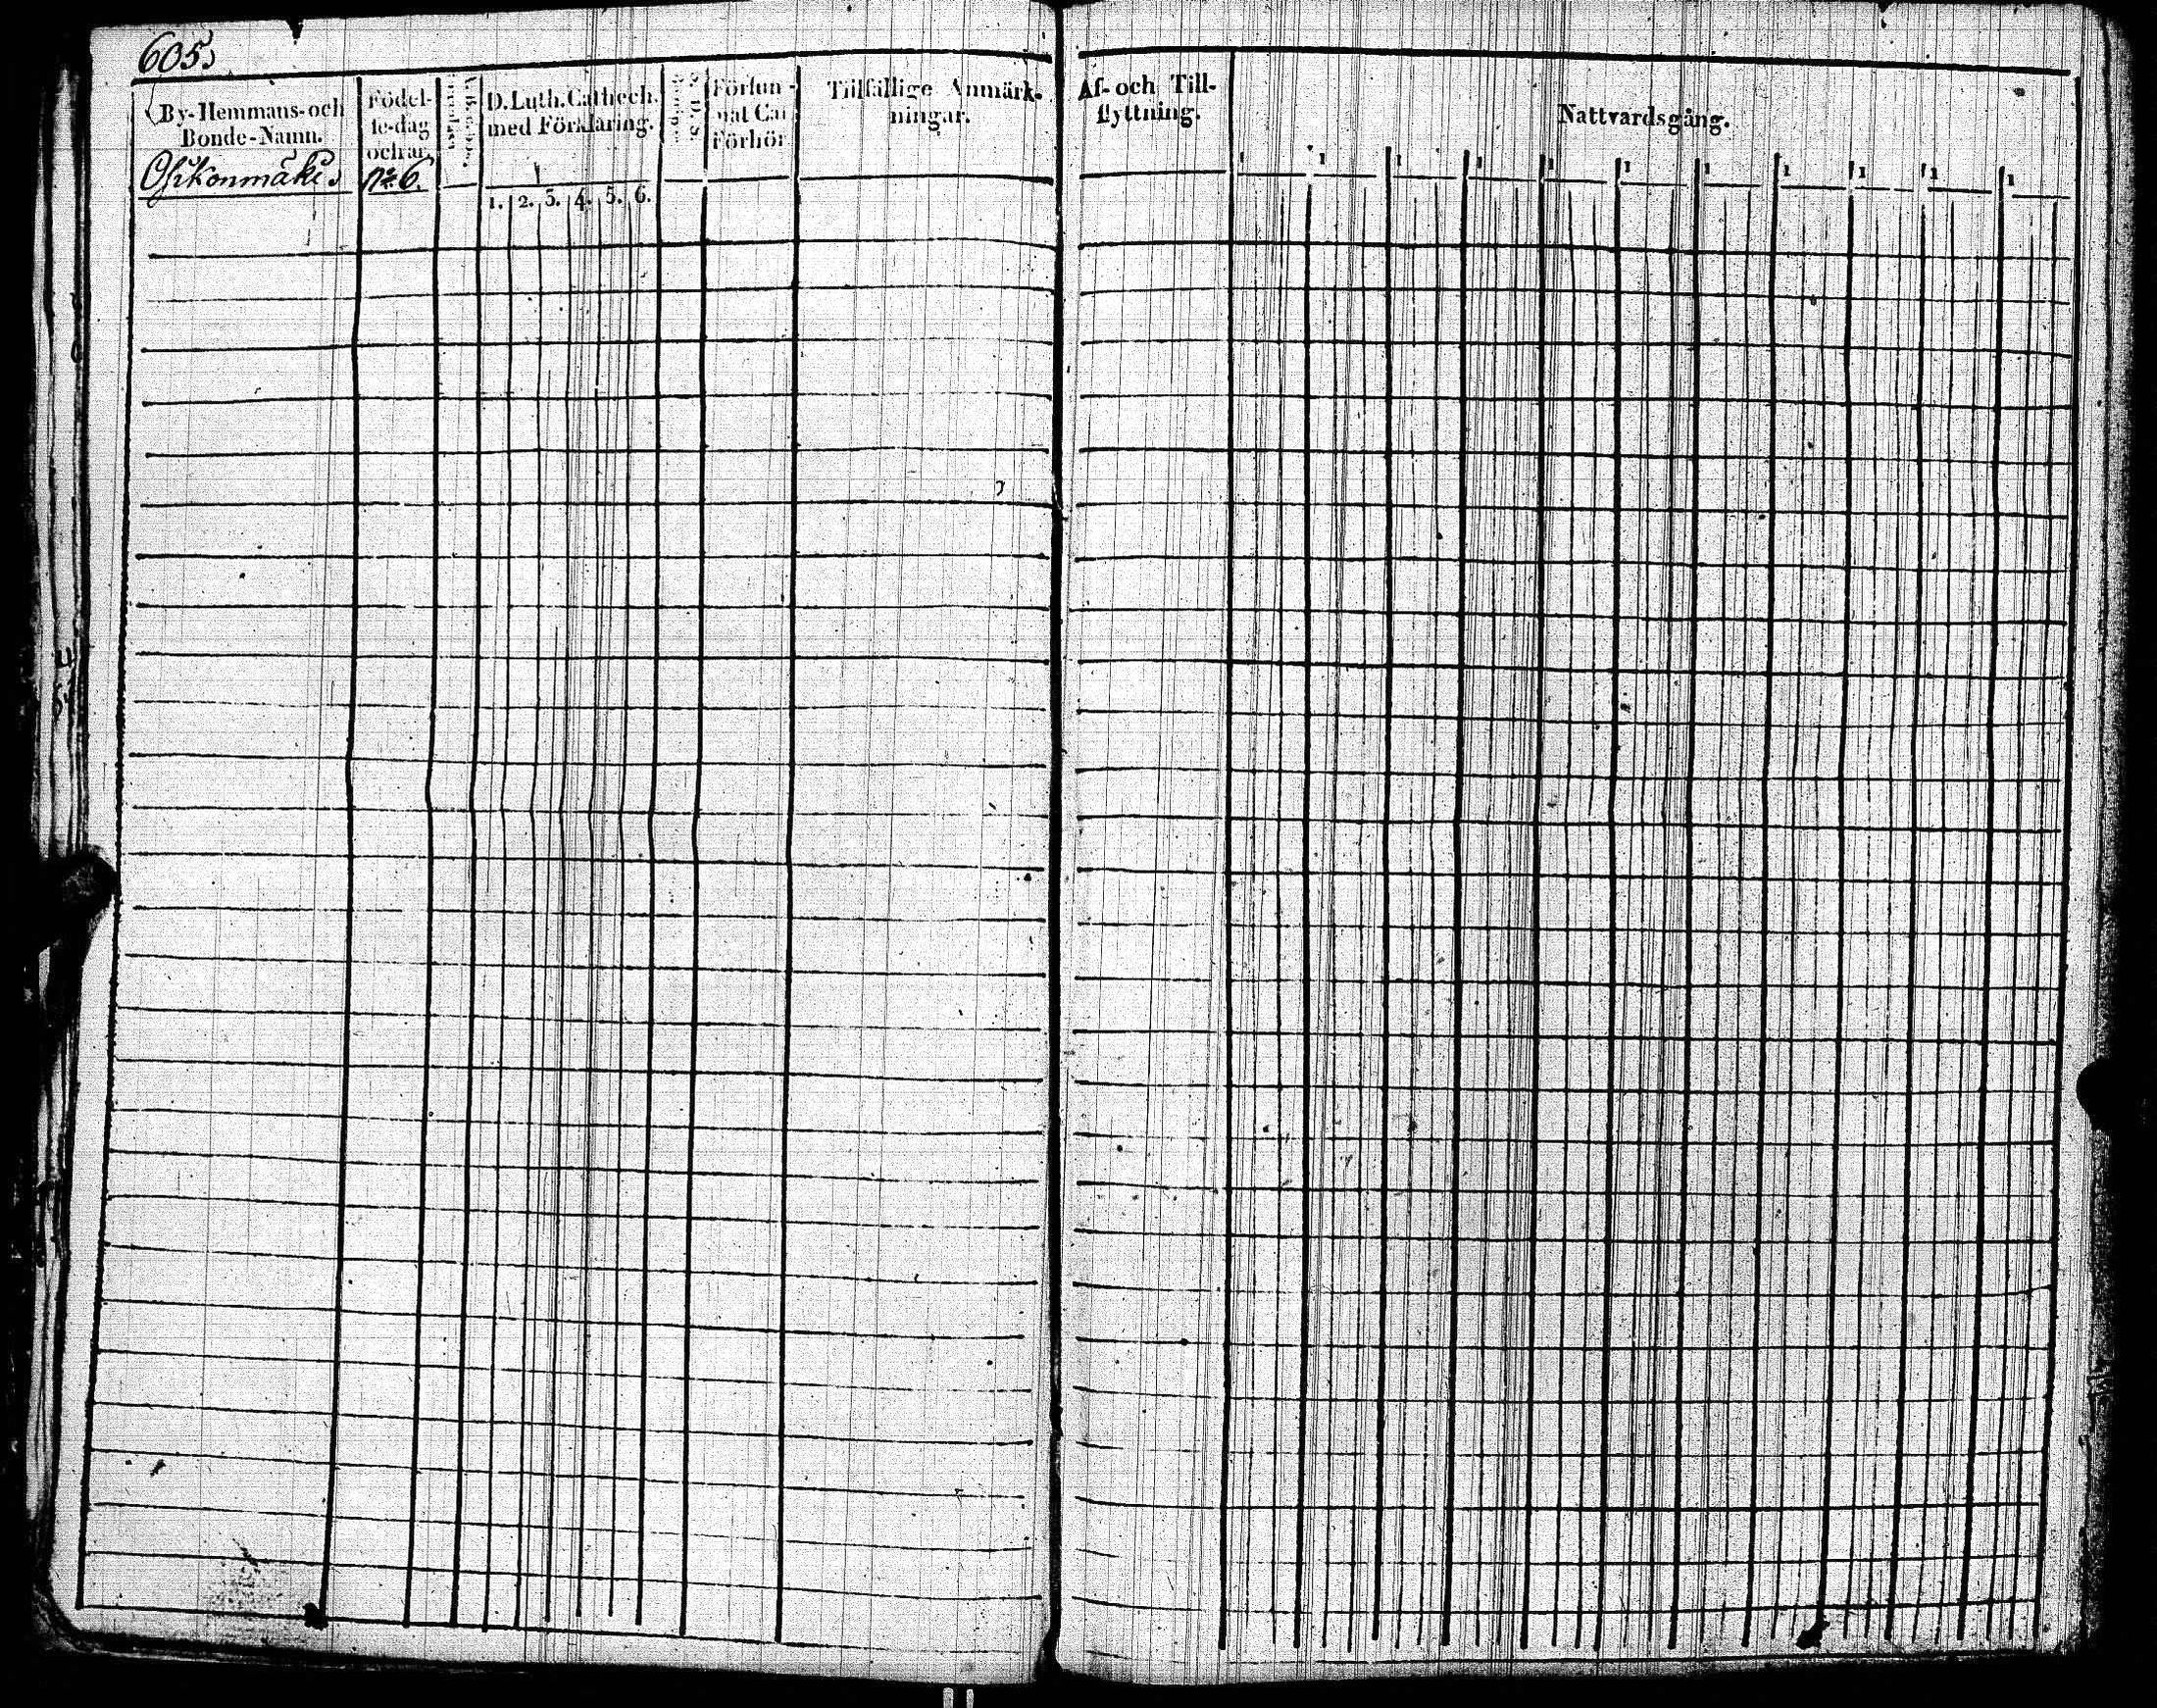 605
By-Hemmans-och
Bonde-Namn.
Födel-
se-dag
och år.
D. Luth. Cathech.
med Förklaring.
Försum-
nat Cat
Förhör
Tillfällige Anmärk-
ningar.
Af- och Till-
flyttning.
Nattvardsgång.
No 6.
1. 2. 3. 4. 5. 6.
1 1 1 1 1 1 1 1 1 1 1